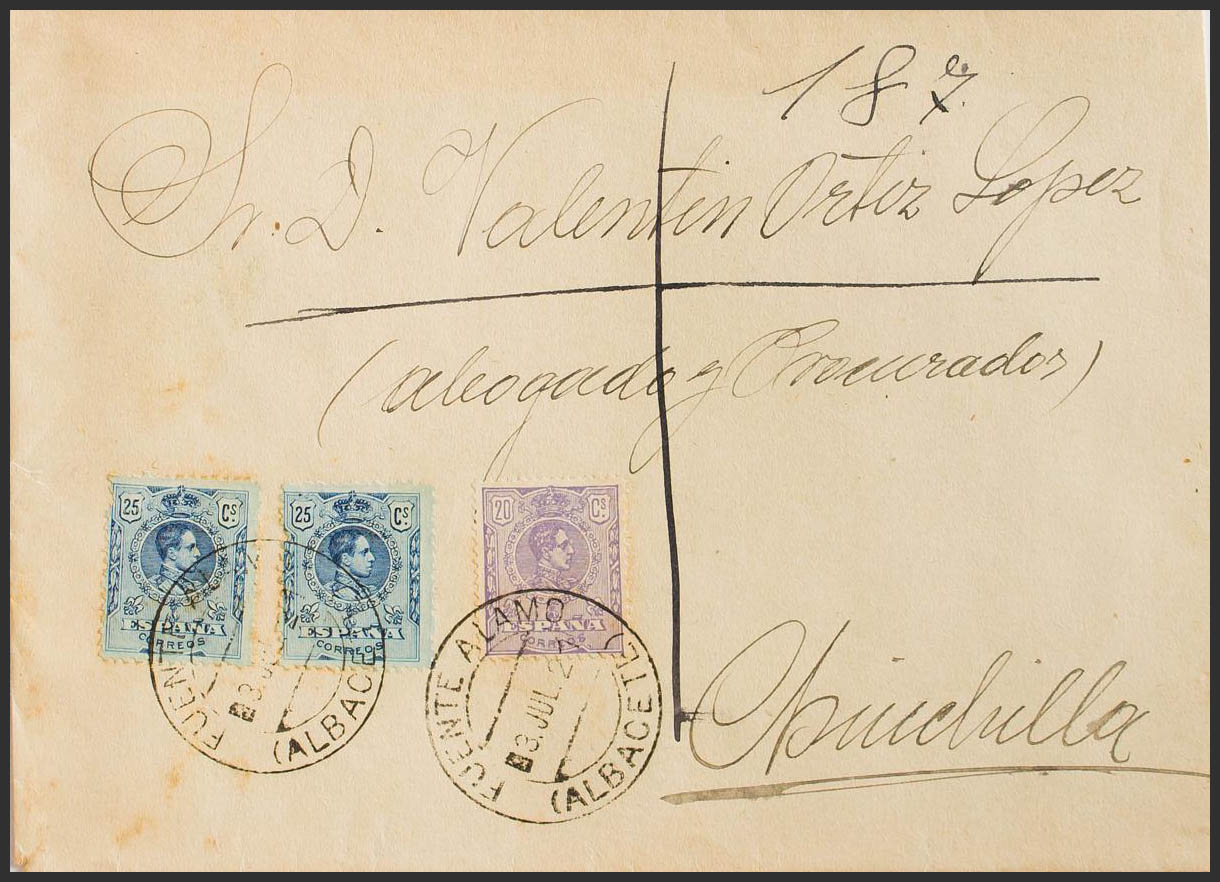 187
Sr. D. Valentin Ortiz Lopez
(abogado y Procurador)
25 Cs.
ESPAÑA
CORREOS
25 Cs.
ESPAÑA
CORREOS
20 Cs.
ESPAÑA
CORREOS
FUENTE ALAMO
3 JUL. 2
(ALBACETE)
FUEN
3 JU
(ALBACE
Chinchilla